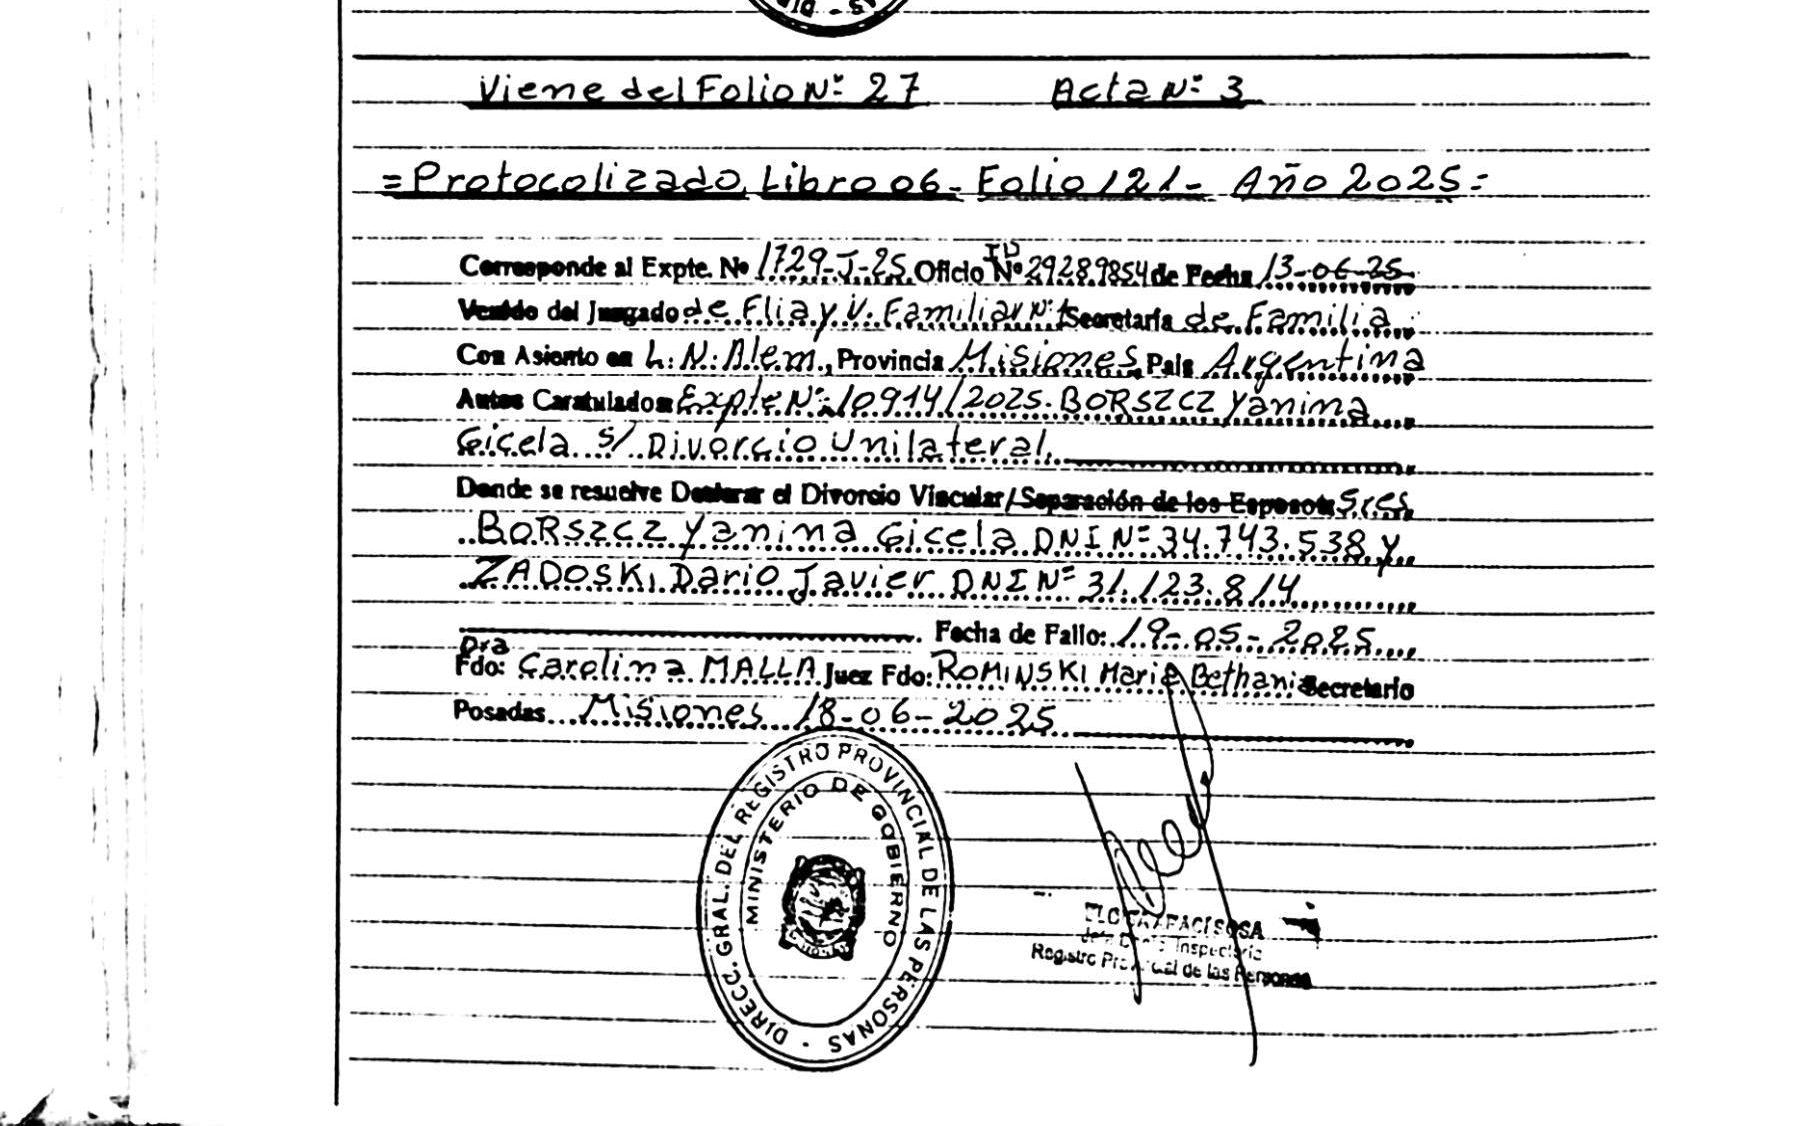 Viene del Folio Nº 27 Acta Nº 3
=Protocolizado, Libro 06- Folio 121- Año 2025=
Corresponde al Expte. Nº 1729-J-25 Oficio ID Nº 29289854 de Fecha 13-06-25
Venido del Juzgado de Flia y V. Familiar Nº 1 Secretaría de Familia
Con Asiento en L.N. Alem, Provincia Misiones País Argentina
Autos Caratulados Expte Nº 10914/2025. BORSZCZ Yanina
Gicela s/ Divorcio Unilateral.
Donde se resuelve Declarar el Divorcio Vincular/Separación de los Esposos: Sres
BORSZCZ Yanina Gicela DNI Nº 34.743.538 y
ZADOSKI Dario Javier DNI Nº 31.123.814
Fecha de Fallo: 19-05-2025
Dra
Fdo: Carolina MALLA Juez Fdo: ROMINSKI Maria Bethania Secretario
Posadas Misiones 18-06-2025
DIRECC. GRAL. DEL REGISTRO PROVINCIAL DE LAS PERSONAS
MINISTERIO DE GOBIERNO
SOSA
Inspectoria
Registro Provincial de las Personas